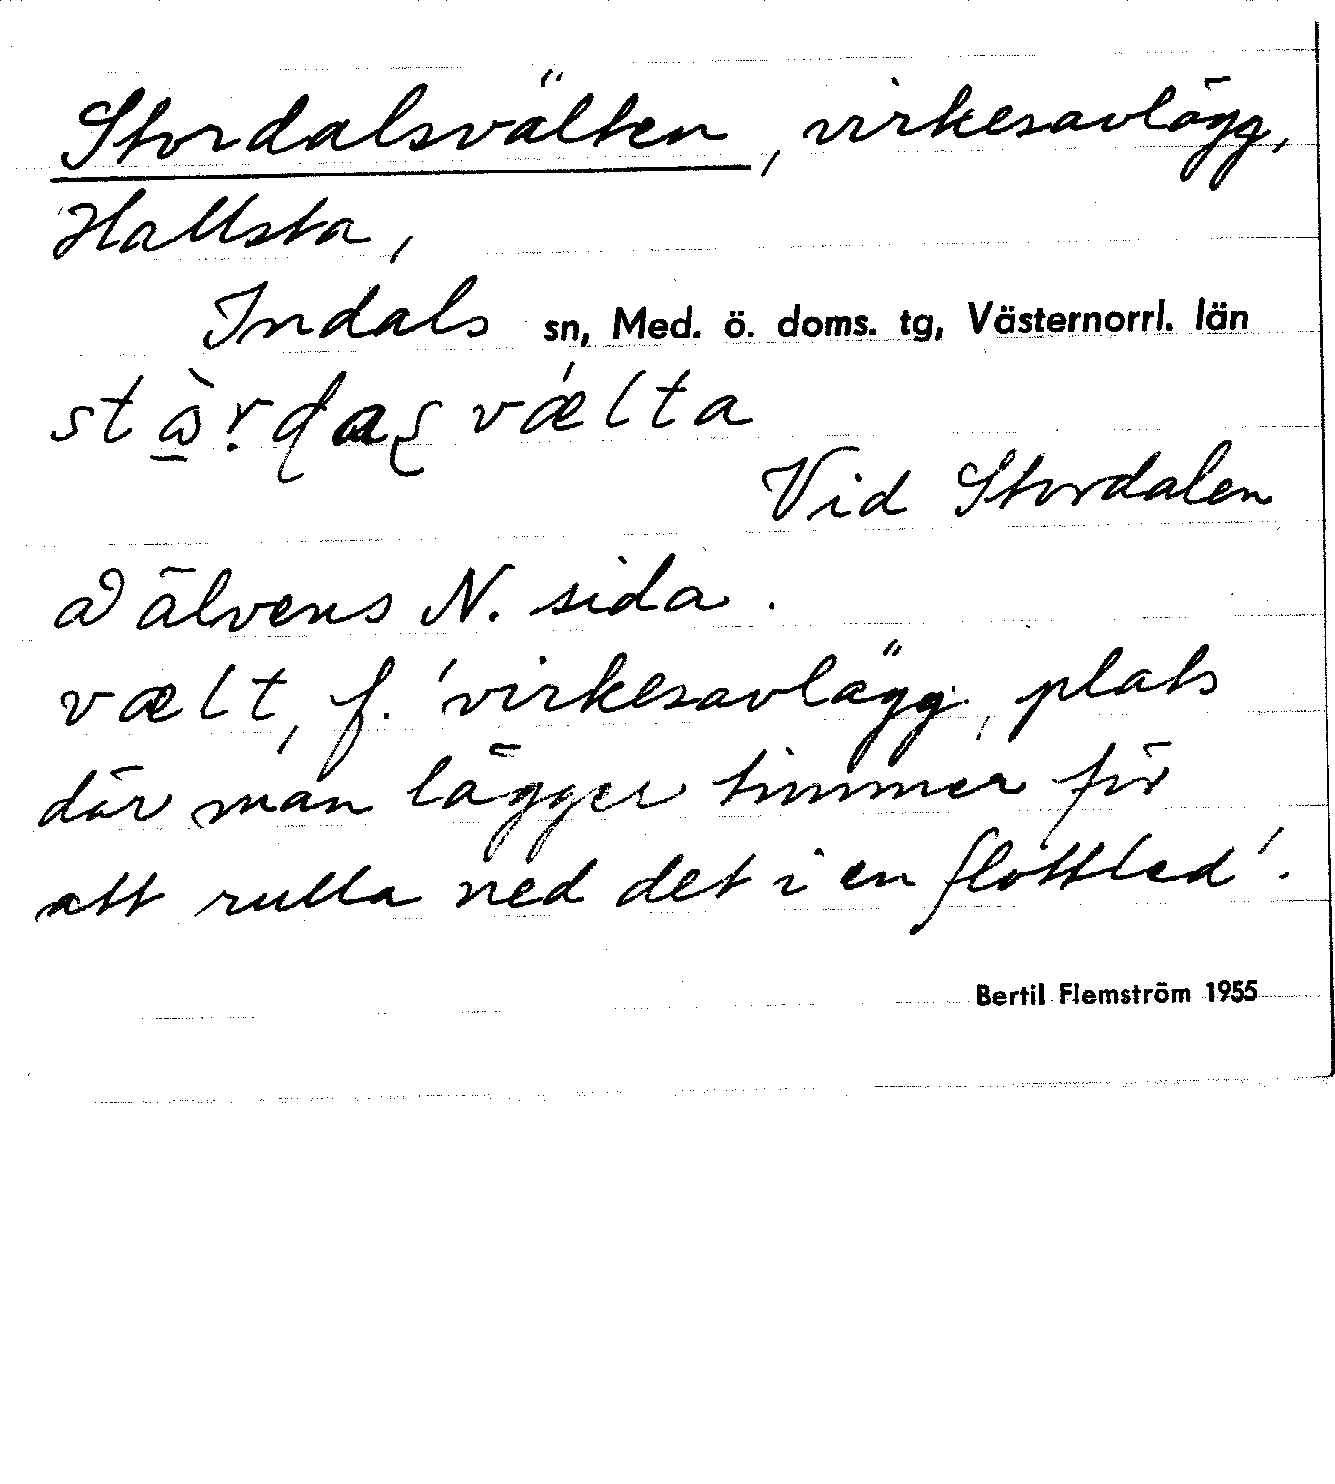 Stordalsvälten, virkesavlägg,
Hallsta,
Indals sn, Med. ö. doms. tg, Västernorrl. län
vǽlta
Vid Stordalen
å älvens N. sida.
vælt, f. 'virkesavlägg, plats
där man lägger timmer för
att rulla ned det i en flottled'.
Bertil Flemström 1955